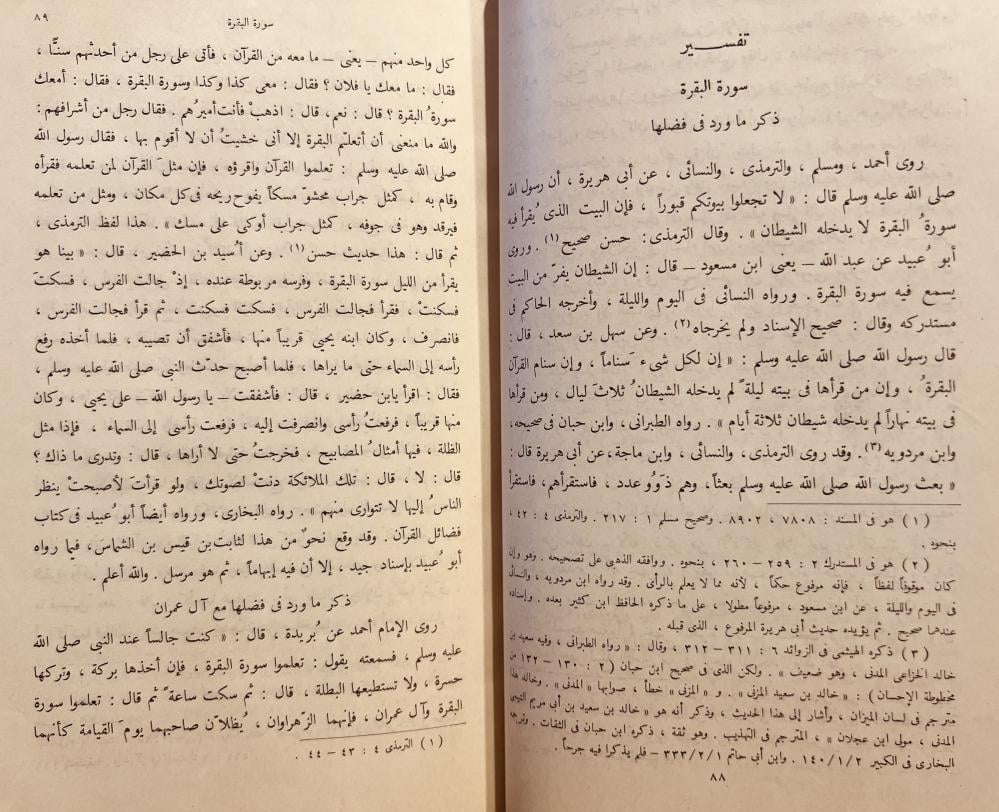 تفسير
سورة البقرة
ذكر ما ورد فى فضلها
روى أحمد ، ومسلم ، والترمذى ، والنسائى ، عن أبى هريرة ، أن رسول الله
صلى الله عليه وسلم قال : « لا تجعلوا بيوتكم قبوراً ، فإن البيت الذى يُقرأ فيه
سورةُ البقرة لا يدخله الشيطان » . وقال الترمذى : حسن صحيح (١) . وروى
أبو عُبيد عن عبد الله – يعنى ابن مسعود – قال : إن الشيطان يفرّ من البيت
يسمع فيه سورة البقرة . ورواه النسائى فى اليوم والليلة ، وأخرجه الحاكم فى
مستدركه وقال : صحيح الإسناد ولم يخرجاه (٢) . وعن سهل بن سعد ، قال :
قال رسول الله صلى الله عليه وسلم : « إن لكل شىء سَناماً ، وإن سنام القرآن
البقرةُ ، وإن من قرأها فى بيته ليلةً لم يدخله الشيطانُ ثلاثَ ليال ، ومن قرأها
فى بيته نهاراً لم يدخله شيطان ثلاثة أيام » . رواه الطبرانى، وابن حبان فى صحيحه،
وابن مردويه (٣) . وقد روى الترمذى، والنسائى ، وابن ماجة، عن أبى هريرة قال :
« بعث رسول الله صلى الله عليه وسلم بعثاً، وهم ذَوُو عدد ، فاستقرأهم، فاستقرأ
( ١ ) هو فى المسند : ٧٨٠٨ ، ٨٩٠٢ . وصحيح مسلم ١ : ٢١٧ . والترمذى ٤ : ٤٢ ،
بنحوه .
( ٢ ) هو فى المستدرك ٢ : ٢٥٩ – ٢٦٠ ، بنحوه . ووافقه الذهبى على تصحيحه . وهو وإن
كان موقوفاً لفظاً ، فإنه مرفوع حكماً ، لأنه مما لا يعلم بالرأى . وقد رواه ابن مردويه ، والنسائى
فى اليوم والليلة ، عن ابن مسعود ، مرفوعاً مطولا ، على ما ذكره الحافظ ابن كثير بعده . وإسناده
عندهما صحيح . ثم يؤيده حديث أبى هريرة المرفوع ، الذى قبله .
( ٣ ) ذكره الهيثمى فى الزوائد ٦ : ٣١١ – ٣١٢ ، وقال : « رواه الطبرانى ، وفيه سعيد بن
خالد الخزاعى المدنى ، وهو ضعيف » . ولكن الذى فى صحيح ابن حبان ( ٢ : ١٣٠ – ١٣٢ من
مخطوطة الإحسان ) : « خالد بن سعيد المزنى » . و « المزنى » خطأ ، صوابها « المدنى » . وخالد هذا
مترجم فى لسان الميزان ، وأشار إلى هذا الحديث ، وذكر أنه هو « خالد بن سعيد بن أبى مريم التيمى
المدنى ، مولى ابن عجلان » ، المترجم فى التهذيب . وهو ثقة ، ذكره ابن حبان فى الثقات . وترجمه
البخارى فى الكبير ١٤٠/١/٢ . وابن أبى حاتم ٣٣٣/٢/١ – فلم يذكرا فيه جرحاً .
٨٨
سورة البقرة
٨٩
كل واحد منهم – يعنى – ما معه من القرآن ، فأتى على رجل من أحدثهم سنًّا ،
فقال : ما معك يا فلان ؟ فقال : معى كذا وكذا وسورة البقرة ، فقال : أمعك
سورةُ البقرة ؟ قال : نعم، قال : اذهبْ فأنت أميرُهم . فقال رجل من أشرافهم :
والله ما منعنى أن أتعلم البقرة إلا أنى خشيتُ أن لا أقوم بها ، فقال رسول الله
صلى الله عليه وسلم : تعلموا القرآن واقرؤه ، فإن مثلَ القرآن لمن تعلمه فقرأه
وقام به ، كمثل جراب محشوّ مسكاً يفوح ريحه فى كل مكان ، ومثل من تعلمه
فيرقد وهو فى جوفه ، كمثل جراب أوكى على مسك » . هذا لفظ الترمذى ،
ثم قال : هذا حديث حسن (١) . وعن أُسيد بن الحضير ، قال : « بينا هو
يقرأ من الليل سورة البقرة ، وفرسه مربوطة عنده ، إذْ جالت الفرس ، فسكتَ
فسكنتْ ، فقرأ فجالت الفرس ، فسكت فسكنت ، ثم قرأ فجالت الفرس ،
فانصرف ، وكان ابنه يحيى قريباً منها ، فأشفق أن تصيبه ، فلما أخذه رفع
رأسه إلى السماء حتى ما يراها ، فلما أصبح حدّث النبى صلى الله عليه وسلم ،
فقال : اقرأ يابن حضير ، قال : فأشفقت – يا رسول الله – على يحيى ، وكان
منها قريباً ، فرفعتُ رأسى وانصرفت إليه ، فرفعت رأسى إلى السماء ، فإذا مثل
الظلة ، فيها أمثالُ المصابيح ، فخرجتُ حتى لا أراها ، قال : وتدرى ما ذاك ؟
قال : لا ، قال : تلك الملائكة دنتْ لصوتك ، ولو قرأتَ لأصبحتْ ينظر
الناسُ إليها لا تتوارى منهم » . رواه البخارى، ورواه أيضاً أبو عُبيد فى كتاب
فضائل القرآن . وقد وقع نحوٌ من هذا لثابت بن قيس بن الشماس، فيما رواه
أبو عُبيد بإسناد جيد ، إلا أن فيه إبهاماً ، ثم هو مرسل . والله أعلم .
ذكر ما ورد فى فضلها مع آل عمران
روى الإمام أحمد عن بُريدة ، قال : « كنت جالساً عند النبى صلى الله
عليه وسلم ، فسمعته يقول : تعلموا سورة البقرة ، فإن أخذها بركة ، وتركها
حسرة ، ولا تستطيعها البطلة ، قال : ثم سكت ساعةً ثم قال : تعلموا سورة
البقرة وآل عمران ، فإنهما الزهراوان ، يُظلان صاحبهما يومَ القيامة كأنهما
( ١ ) الترمذى ٤ : ٤٣ – ٤٤ .